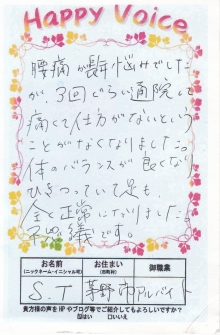 Happy Voice
腰痛が長年悩みでした
が、3回くらい通院して
痛くて仕方がないという
ことがなくなりました。
体のバランスが良くなり
ひきつっていた足も
全く正常になりました。
不思議です。
お名前 お住まい 御職業
(ニックネーム・イニシャル可) (市町村)
S 茅野市 アルバイト
貴方様の声をHPやブログ等でご紹介してもよろしいですか?
はい □いいえ